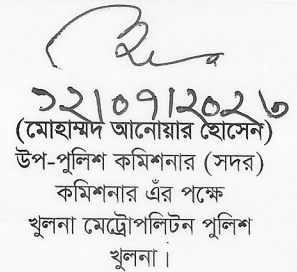 ১২/০৭/২০২৩
(মোহাম্মদ আনোয়ার হোসেন)
উপ-পুলিশ কমিশনার (সদর)
কমিশনার এঁর পক্ষে
খুলনা মেট্রোপলিটন পুলিশ
খুলনা।